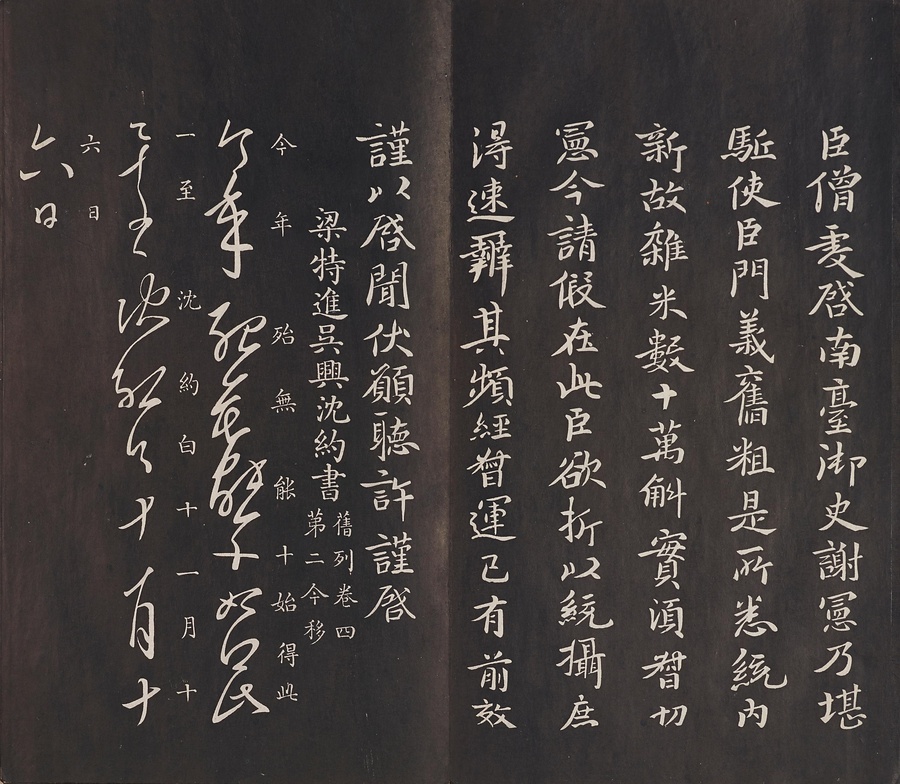 臣僧虔啓南臺御史謝憲乃堪
駈使臣門義舊粗是所悉統内
新故雜米數十萬斛實須督切
憲今請假在此臣欲折以統攝庶
得速辦其頻經督運已有前效
謹以啓聞伏願聽許謹啓
梁特進吳興沈約書
舊列卷四
第二今移
今年殆無能十始得此
今年殆無能十始得此
一至沈約白十一月十
一至沈約白十一月十
六日
六日